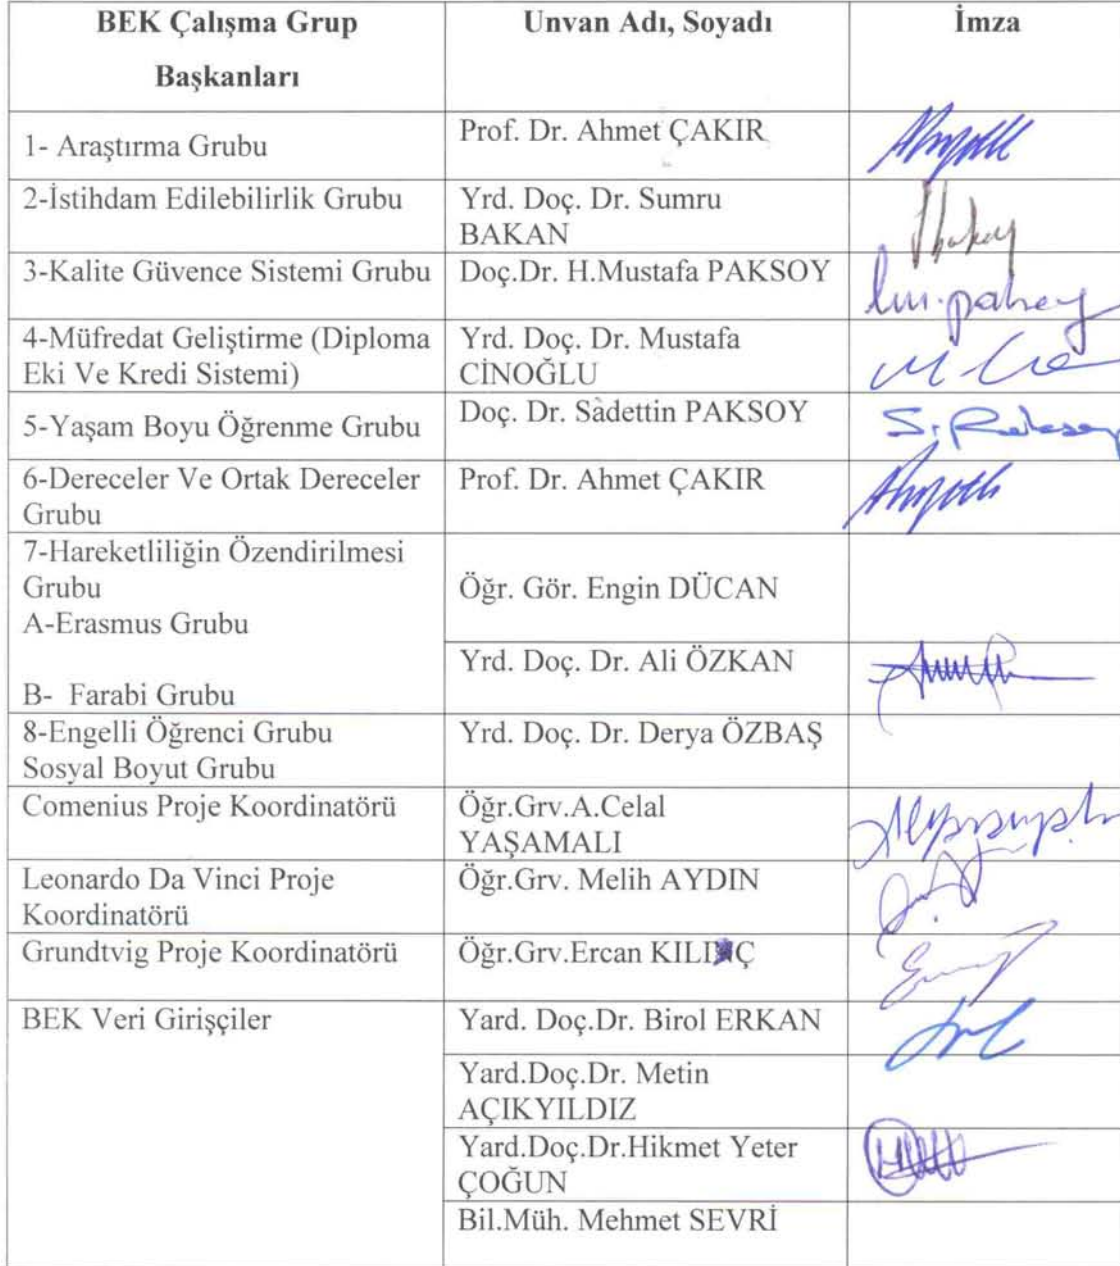 BEK Çalışma Grup
Başkanları
Unvan Adı, Soyadı
İmza
1- Araştırma Grubu
Prof. Dr. Ahmet ÇAKIR
2-İstihdam Edilebilirlik Grubu
Yrd. Doç. Dr. Sumru
BAKAN
3-Kalite Güvence Sistemi Grubu
Doç.Dr. H.Mustafa PAKSOY
4-Müfredat Geliştirme (Diploma
Eki Ve Kredi Sistemi)
Yrd. Doç. Dr. Mustafa
CİNOĞLU
5-Yaşam Boyu Öğrenme Grubu
Doç. Dr. Sadettin PAKSOY
6-Dereceler Ve Ortak Dereceler
Grubu
Prof. Dr. Ahmet ÇAKIR
7-Hareketliliğin Özendirilmesi
Grubu
A-Erasmus Grubu
Öğr. Gör. Engin DÜCAN
B- Farabi Grubu
Yrd. Doç. Dr. Ali ÖZKAN
8-Engelli Öğrenci Grubu
Sosyal Boyut Grubu
Yrd. Doç. Dr. Derya ÖZBAŞ
Comenius Proje Koordinatörü
Öğr.Grv.A.Celal
YAŞAMALI
Leonardo Da Vinci Proje
Koordinatörü
Öğr.Grv. Melih AYDIN
Grundtvig Proje Koordinatörü
Öğr.Grv.Ercan
BEK Veri Girişçiler
Yard. Doç.Dr. Birol ERKAN
Yard.Doç.Dr. Metin
AÇIKYILDIZ
Yard.Doç.Dr.Hikmet Yeter
ÇOĞUN
Bil.Müh. Mehmet SEVRİ